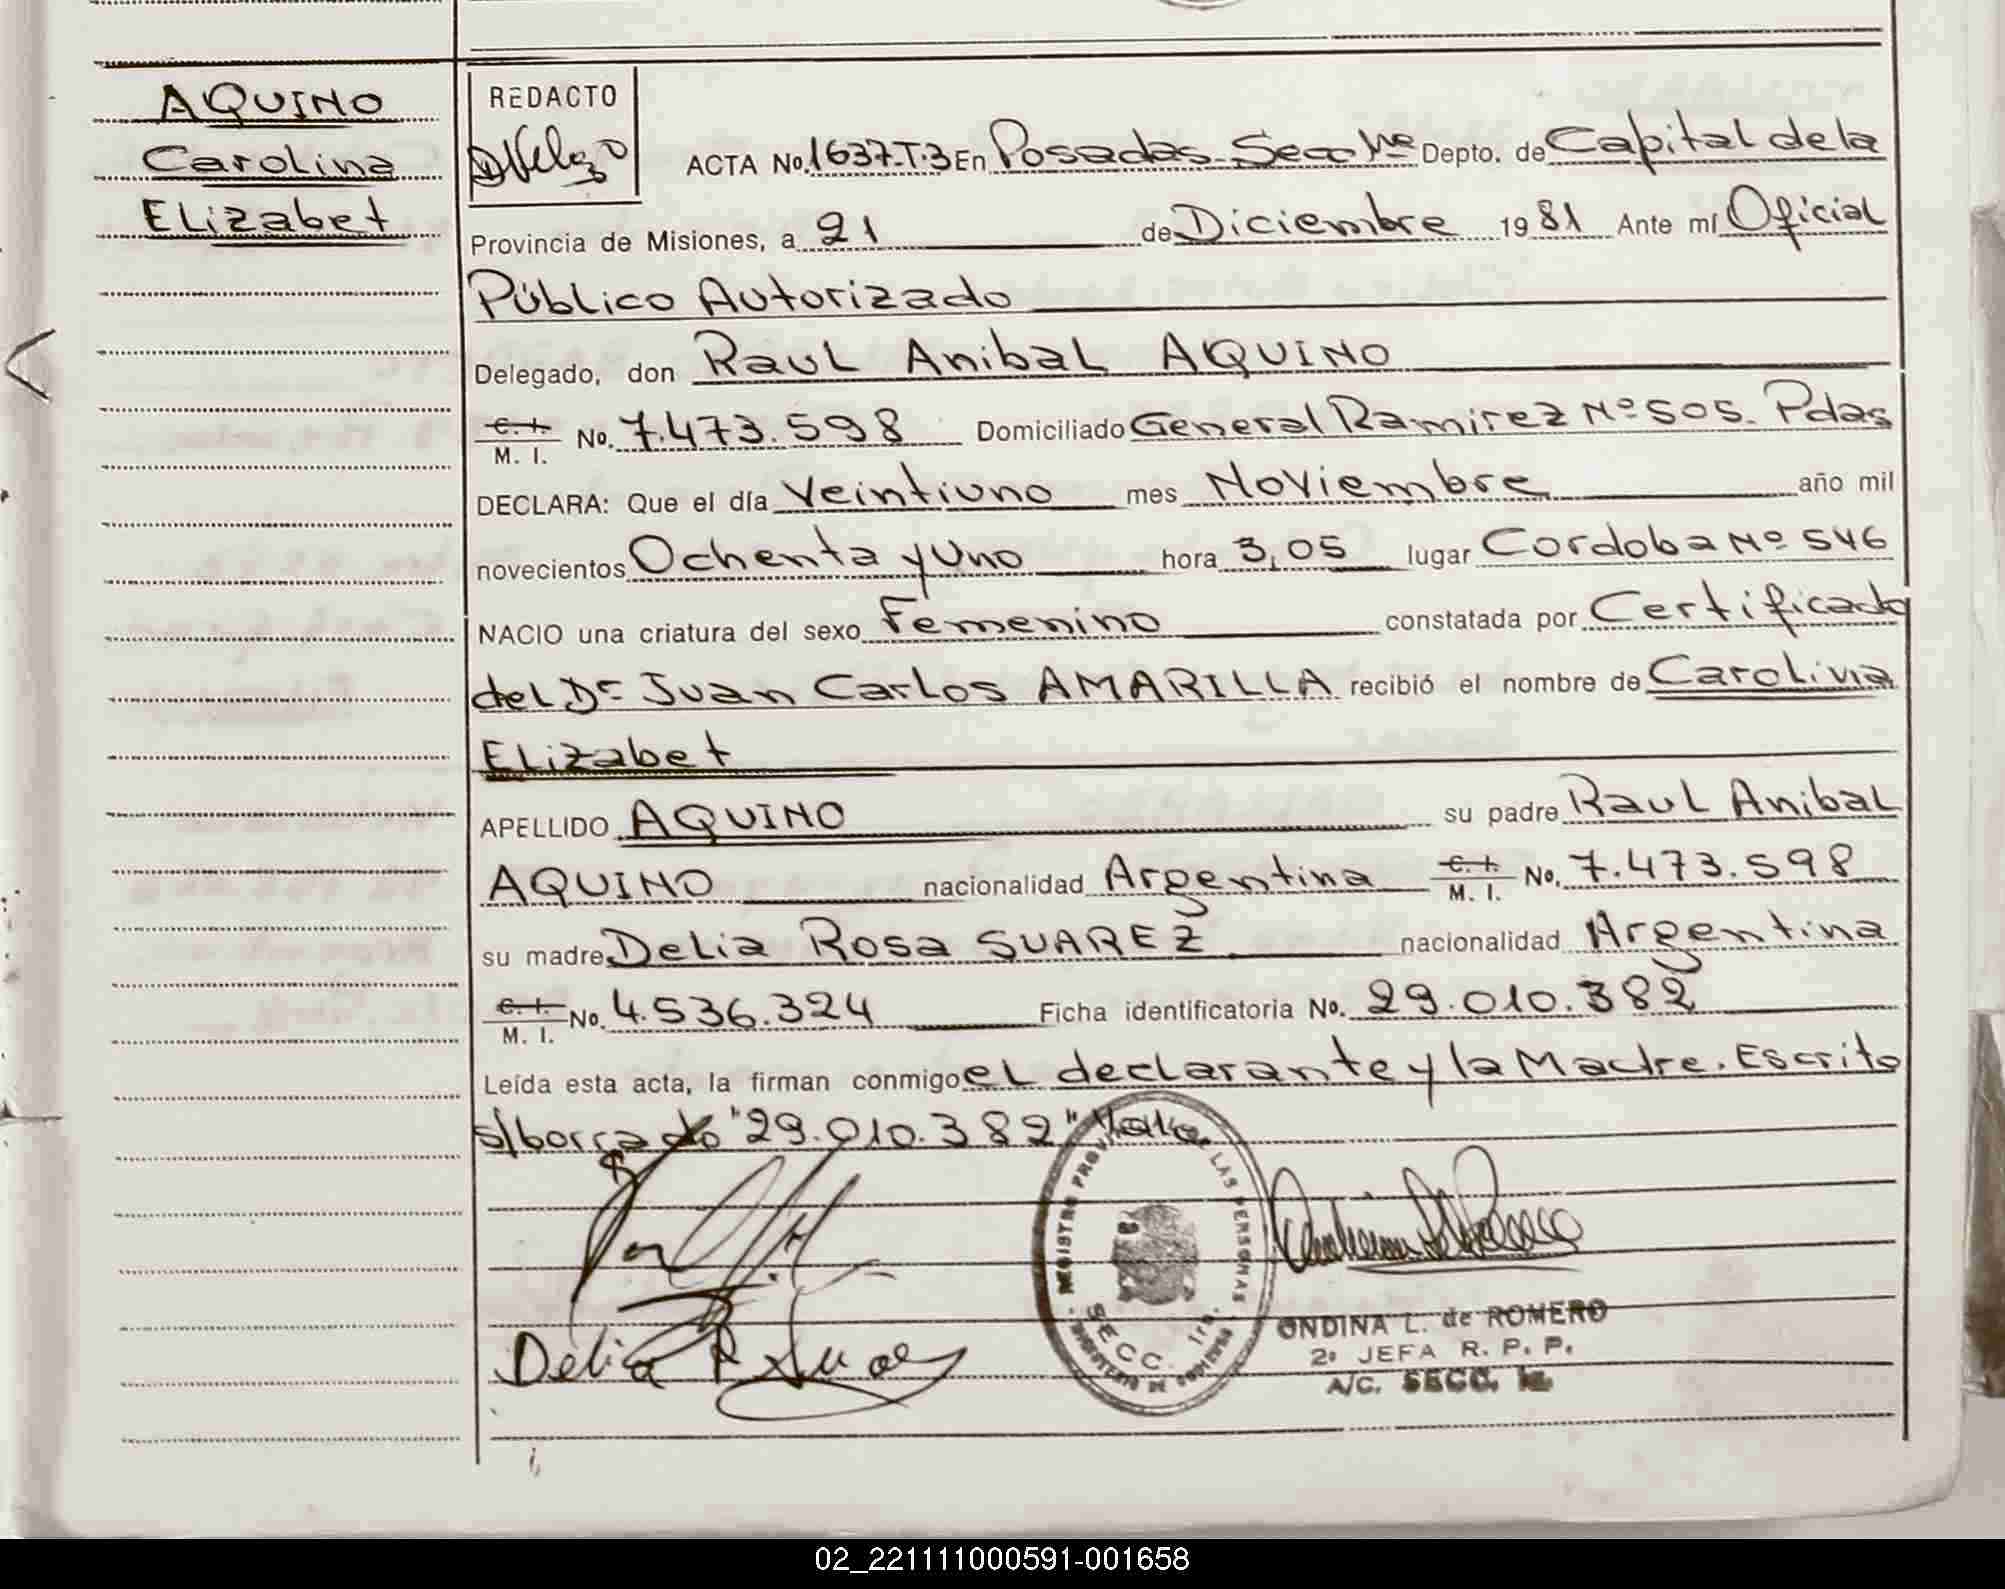 AQUINO
Carolina
Elizabet
REDACTO
ACTA No. 1637-T.3 En Posadas - Secc 1ra Depto. de Capital de la
Provincia de Misiones, a 21 de Diciembre 1981 Ante mí Oficial
Público Autorizado
Delegado, don Raul Anibal AQUINO
C. I.
M. I. No. 7.473.598 Domiciliado General Ramirez Nº 505. Pdas
DECLARA: Que el día Veintiuno mes Noviembre año mil
novecientos Ochenta y Uno hora 3,05 lugar Cordoba Nº 546
NACIO una criatura del sexo Femenino constatada por Certificado
del Dr Juan Carlos AMARILLA recibió el nombre de Carolina
Elizabet
APELLIDO AQUINO su padre Raul Anibal
AQUINO nacionalidad Argentina C. I. M. I. No. 7.473.598
su madre Delia Rosa SUAREZ nacionalidad Argentina
C. I.
M. I. No. 4.536.324 Ficha identificatoria No. 29.010.382
Leída esta acta, la firman conmigo el declarante y la Madre. Escrito
s/borrado "29.010.382" Vale
REGISTRO PROVINCIAL DE LAS PERSONAS
SECC. 1ra.
Delia R Suarez
ONDINA L. de ROMERO
2ª JEFA R. P. P.
A/C. SECC. 1a.
02_221111000591-001658